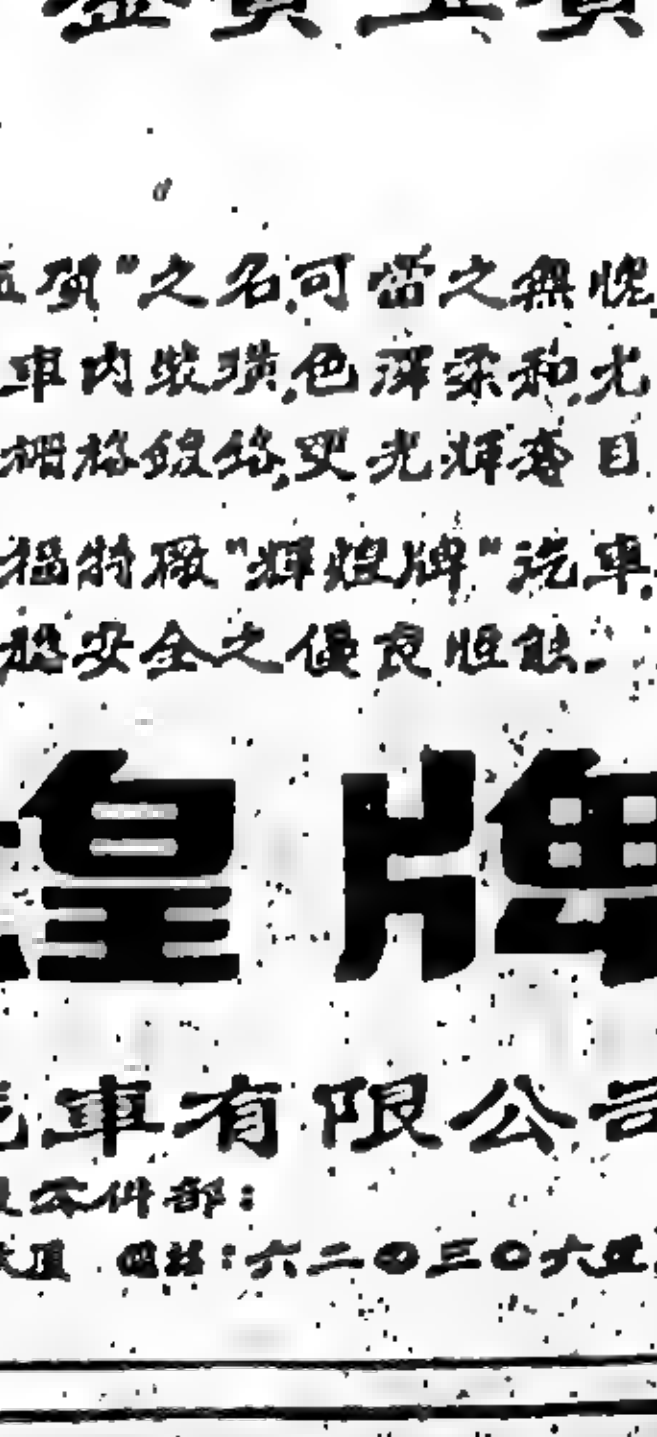 質"之名,可當之無愧
車內裝璜,色澤柔和,光
柵格鍍鉻,更光輝奪目
福特廠"輝煌牌"汽車,
般安全之優良性能。
煌牌
汽車有限公司
零件部:
大厦 電話:六二四三〇六至